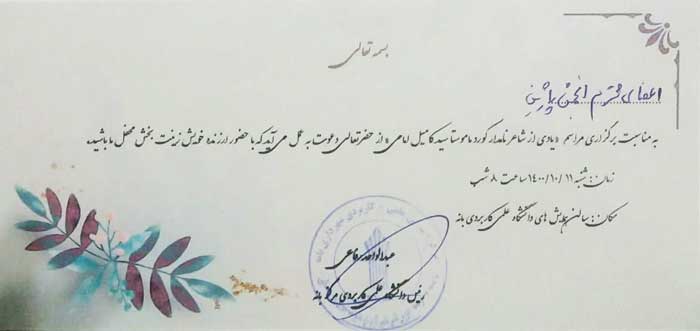 بسمه تعالی
اعضای محترم انجمن پاژین
به مناسبت برگزاری مراسم «یادی از شاعر نامدار کورد ماموستا سید کامیل امامی» از حضرتعالی دعوت به عمل می آید که با حضور ارزنده خویش زینت بخش محفل ما باشید.
زمان: شنبه ۱۴۰۰/۱۰/۱۱ ساعت ۸ شب
مکان: سالن همایش های دانشگاه علمی کاربردی بانه
عبدالواحد رفاعی
رئیس دانشگاه علمی کاربردی مرکز بانه